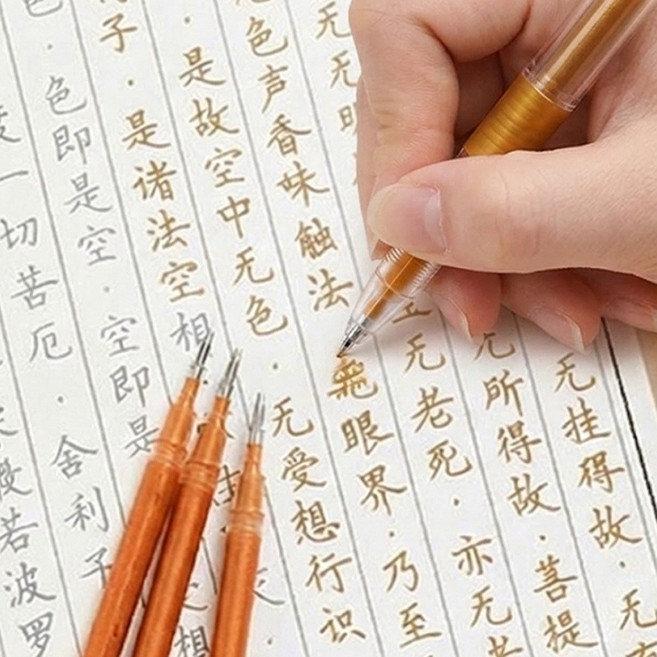 般若波罗
度一切苦厄·舍利子
色即是空·空即是
子·是诸法空相
·是故空中无色·无受想行识
色声香味触法無眼界·乃至
无无明
无老死·亦无老
无所得故·菩提
无挂得故·无有
想